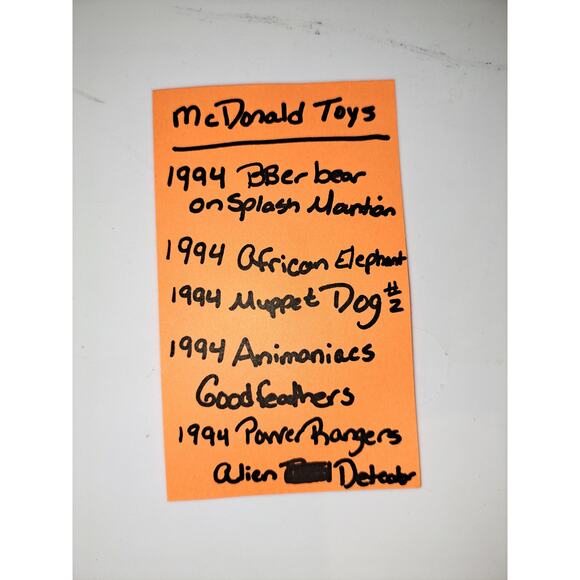 McDonald Toys
1994 BBer bear
on Splash Mantion
1994 African Elephant
1994 Muppet Dog #2
1994 Animaniacs
Goodfeathers
1994 Power Rangers
Alien Detector